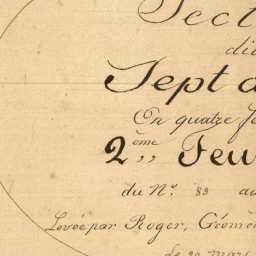 Sect
di
Sept d
En quatre f
2ème Feu
du N.° 83 au
Levée par Roger, Géomè
le 20 mars